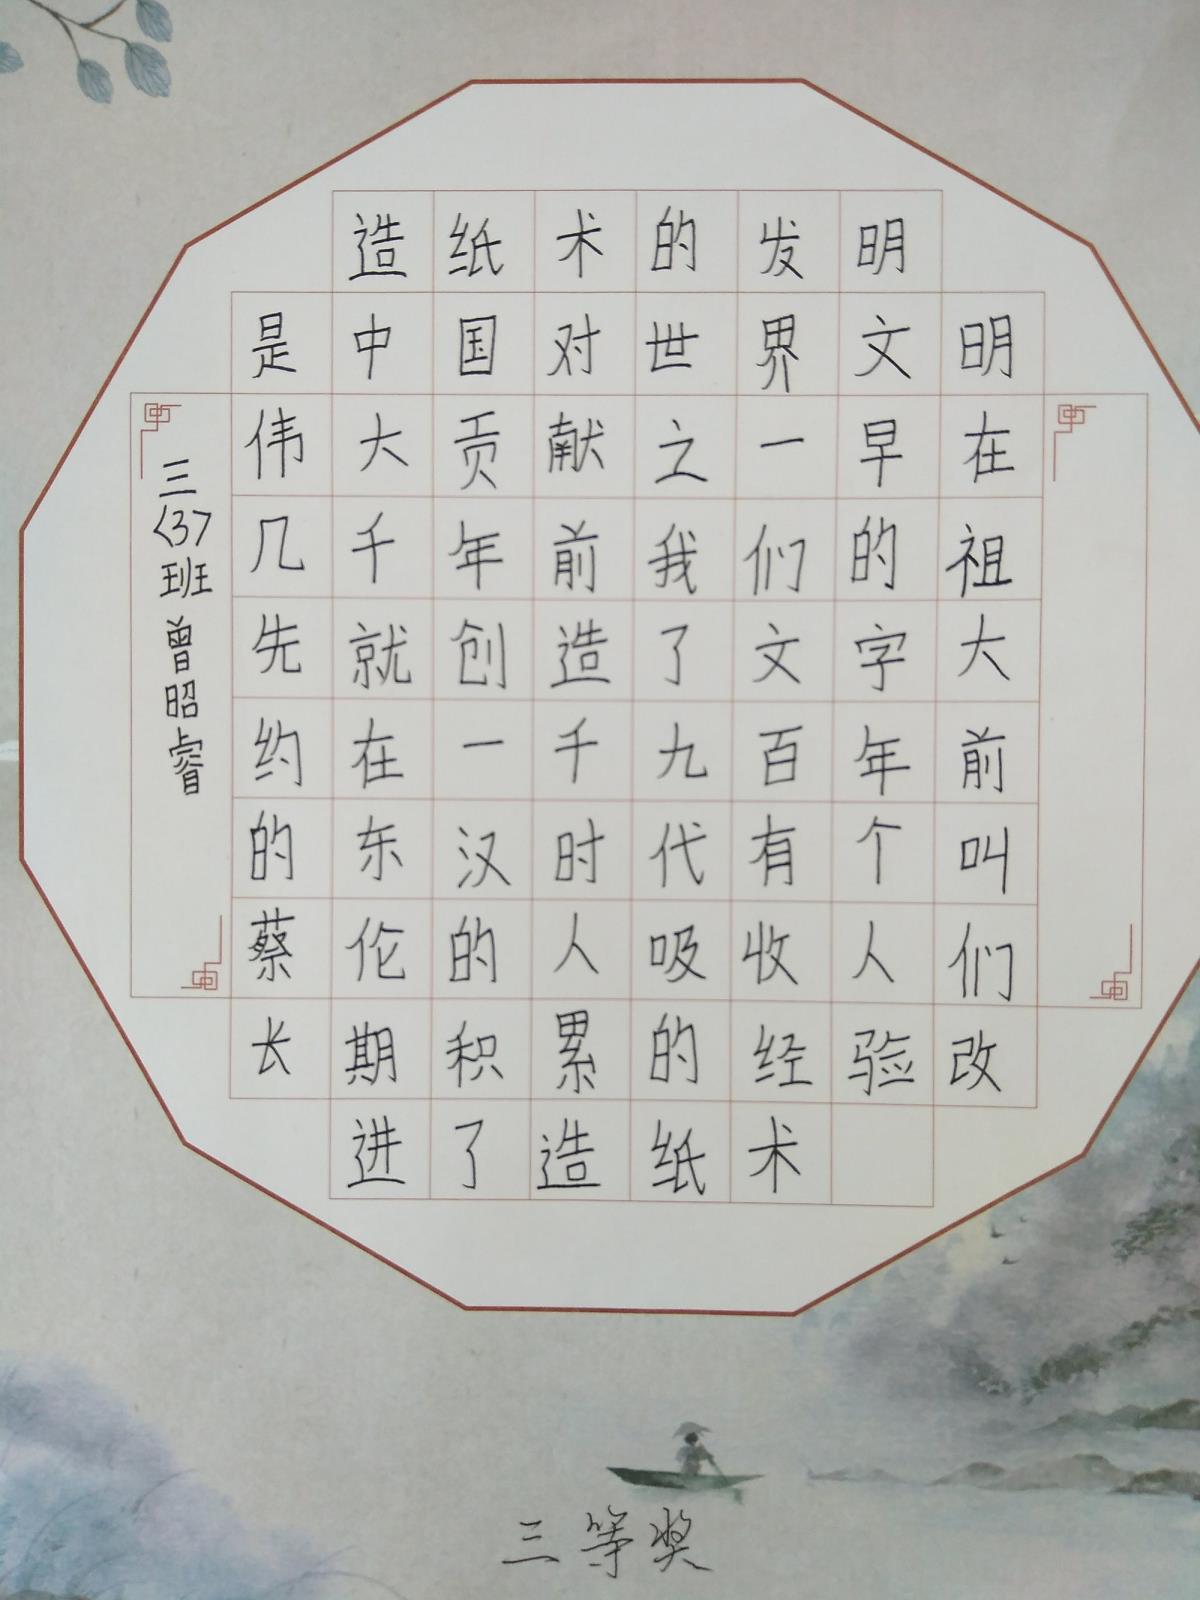 造纸术的发明
是中国对世界文明
伟大贡献之一早在
几千年前我们的祖
先就创造了文字大
约在一千九百年前
的东汉时代有个叫
蔡伦的人吸收人们
长期积累的经验改
进了造纸术
三〈3〉班曾昭睿
三等奖